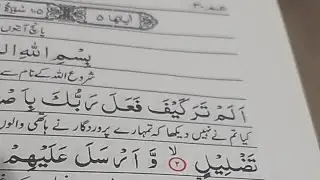 عم ۳۰
اٰیاتها ۵ ۱۰۵ سُوْرَةُ
پانچ آیتوں
بِسْمِ اللّٰهِ
شروع اللہ کے نام سے
اَلَمْ تَرَ كَيْفَ فَعَلَ رَبُّكَ بِاَصْ
کیا تم نے نہیں دیکھا کہ تمہارے پروردگار نے ہاتھی والوں
تَضْلِيْلٍ ۙ‏﴿۲﴾ وَّ اَرْسَلَ عَلَيْهِمْ